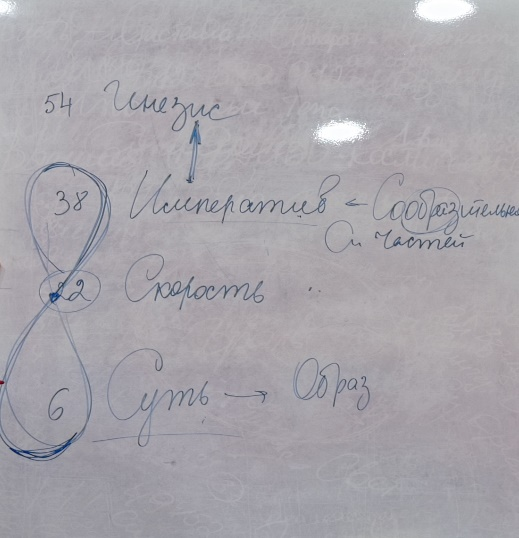 54 Инезис
38 Императив ← Сообразительно
Си частей
22 Скорость ..
6 Суть → Образ